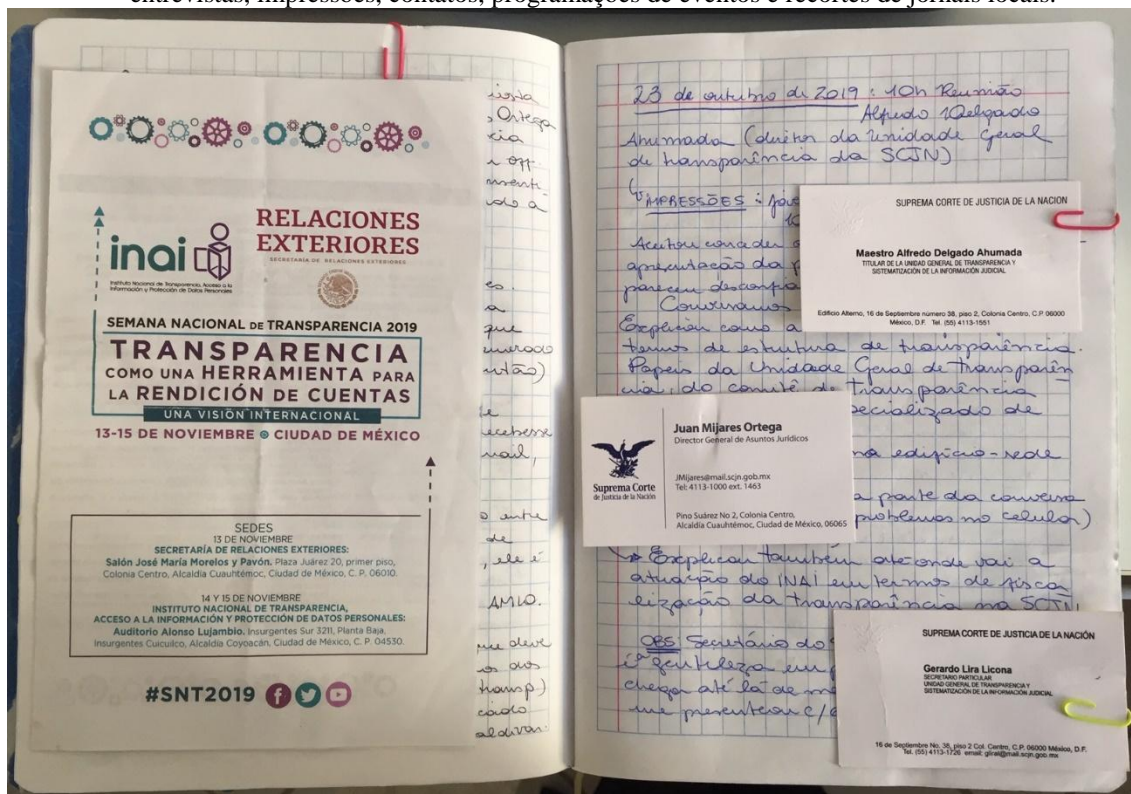 entrevistas, impressões, contatos, programações de eventos e recortes de jornais locais.
Ortega
AMLO.
inai
Instituto Nacional de Transparencia, Acceso a la
Información y Protección de Datos Personales
RELACIONES
EXTERIORES
SECRETARÍA DE RELACIONES EXTERIORES
SEMANA NACIONAL DE TRANSPARENCIA 2019
TRANSPARENCIA
COMO UNA HERRAMIENTA PARA
LA RENDICIÓN DE CUENTAS
UNA VISIÓN INTERNACIONAL
13-15 DE NOVIEMBRE CIUDAD DE MÉXICO
SEDES
13 DE NOVIEMBRE
SECRETARÍA DE RELACIONES EXTERIORES:
Salón José María Morelos y Pavón. Plaza Juárez 20, primer piso,
Colonia Centro, Alcaldía Cuauhtémoc, Ciudad de México, C. P. 06010.
14 Y 15 DE NOVIEMBRE
INSTITUTO NACIONAL DE TRANSPARENCIA,
ACCESO A LA INFORMACIÓN Y PROTECCIÓN DE DATOS PERSONALES:
Auditorio Alonso Lujambio. Insurgentes Sur 3211, Planta Baja,
Insurgentes Cuicuilco, Alcaldía Coyoacán, Ciudad de México, C. P. 04530.
#SNT2019
23 de outubro de 2019: 10h Reunião
Alfredo Delgado
Ahumada (diretor da Unidade Geral
de transparência da SCJN)
IMPRESSÕES:
Aceitou conceder
apresentação da
pareceu
Conversamos
Explicou como a
termos de estrutura de transparência.
Papeis da Unidade Geral de transparên
cia, do comitê de transparência
pecializado de
edifício-sede
a parte da conversa
problemas no celular)
Explicou também até onde vai a
atuação do INAI em termos de fisca
lização da transparência na SCJN
OBS: Secretário do
gentileza em
chegar até lá de
me presenteou c/
SUPREMA CORTE DE JUSTICIA DE LA NACION
Maestro Alfredo Delgado Ahumada
TITULAR DE LA UNIDAD GENERAL DE TRANSPARENCIA Y
SISTEMATIZACIÓN DE LA INFORMACIÓN JUDICIAL
Edificio Alterno, 16 de Septiembre número 38, piso 2, Colonia Centro, C.P. 06000
México, D.F. Tel. (55) 4113-1551
Suprema Corte
de Justicia de la Nación
Juan Mijares Ortega
Director General de Asuntos Jurídicos
JMijares@mail.scjn.gob.mx
Tel: 4113-1000 ext. 1463
Pino Suárez No 2, Colonia Centro,
Alcaldía Cuauhtémoc, Ciudad de México, 06065
SUPREMA CORTE DE JUSTICIA DE LA NACIÓN
Gerardo Lira Licona
SECRETARIO PARTICULAR
UNIDAD GENERAL DE TRANSPARENCIA Y
SISTEMATIZACIÓN DE LA INFORMACIÓN JUDICIAL
16 de Septiembre No. 38, piso 2 Col. Centro, C.P. 06000 México, D.F.
Tel. (55) 4113-1726 email: glira@mail.scjn.gob.mx